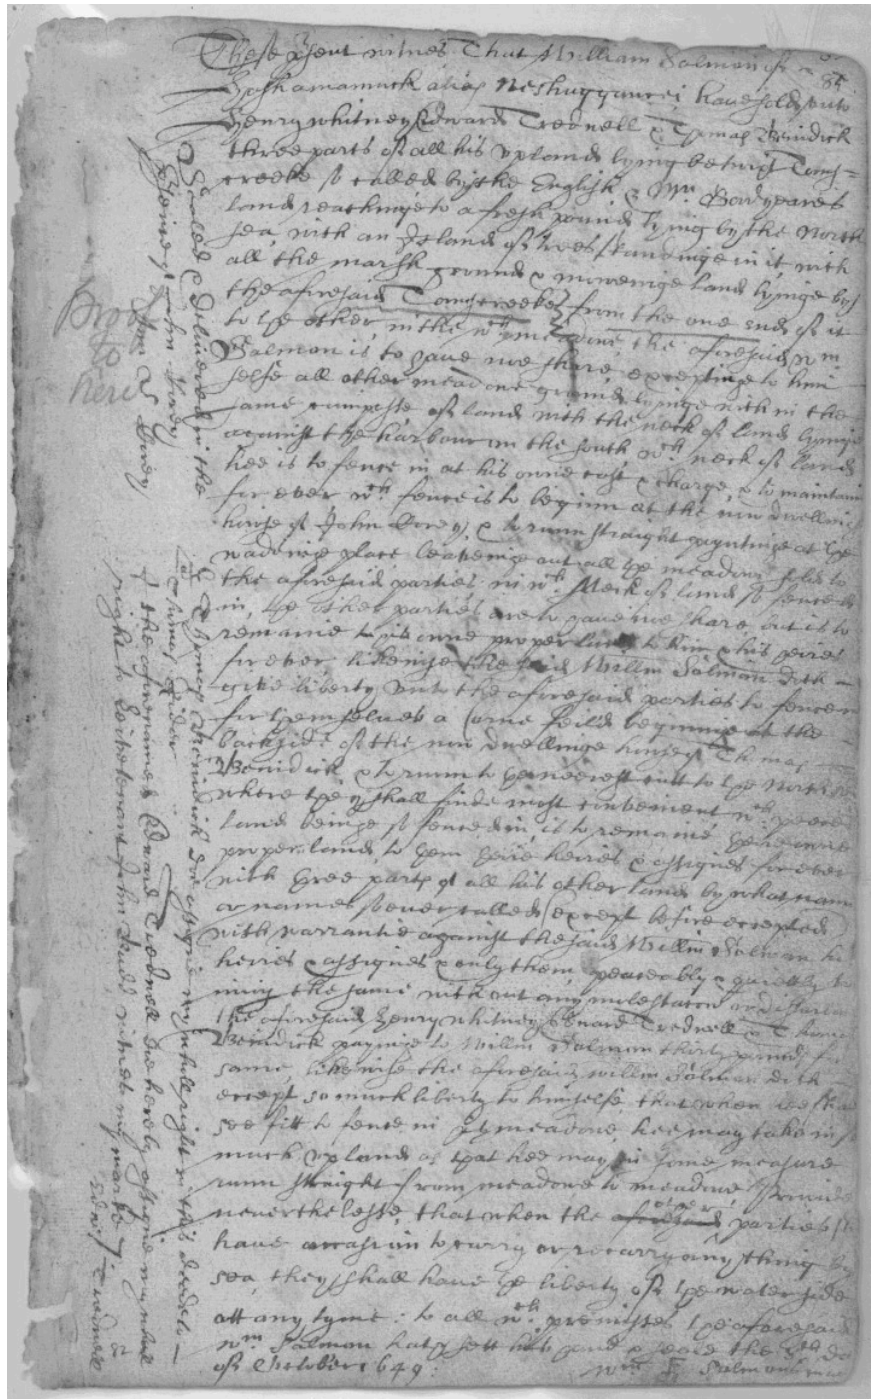 These psent witnes That William Salmon of
84
Hashamamuck alias Neshuggancei have sold unto
Henry Whitney Edward Tredwell & Thomas Benidick
three parts of all his upland lying betwixt Toms=
creeke so called by the English & Mr. Goodyeares
land reachinge to a fresh pound lying by the North
sea, with an Island of trees standinge in it with
all the marsh ground & moweinge land lyinge by
the aforesaid Tomscreeke from the one end of it
to the other in the wch meadow the aforesaid Wm
Salmon is to have noe share exceptinge to him
selfe all other meadowe ground lyinge with in the
same compasse of land with the neck of land lyinge
against the harbour on the south wch neck of land
hee is to fence in at his owne cost & charge, & to maintain
for ever wch fence is to beginn at the now dwellinge
house of John Corey, & to runn straight poyntinge at the
wadeinge place leaveinge out all the meadow sold to
the aforesaid parties in wch Neck of land so fenced
in, the other parties are to have noe share but is to
remaine his owne proper land to him & his heires
for ever likewise the said Willm Salmon doth
give liberty unto the aforesaid parties to fence in
for themselves a Corne feild beginninge at the
backside of the now dwellinge house of Thomas
Benidick & to runn to the neerest cutt to the North sea
where they shall finde most convenient wch peece
land beinge so fenced in is to remaine theire owne
proper land, to them theire heires & assignes for ever
with three parts of all his other land by what name
or names soever called (except before excepted
with warrantie against the said Willm Salmon his
heires & assignes & only them peaceably & quietly to
injoy the same without any molestation or disturbance
the aforesaid Henry Whitney Edward Tredwell & Thomas
Benidick payinge to Willm Salmon thirty pound for
same, likewise the aforesaid Willm Salmon doth
except so much liberty to himselfe that when hee shall
see fitt to fence in his meadowe, hee may take in so
much upland as that hee may in some measure
runn straight from meadowe to meadowe Provided
neverthelesse, that when the other parties
have occasion to carry or recarry any thing by
sea, they shall have the liberty of the water side
att any tyme: to all wch premisses the aforesaid
Wm Salmon hath sett his hand & seale the day
of October 1649:
Wm Salmons
Sealed & Delivered in the
psence of John Corey
John Corey
I Thomas Benidick doe assigne my full right in this deed to
Thomas Rider
I the aforenamed Edward Tredwell doe hereby assigne my whole
right to Leiuetenant John Budd witnes my marke
Edw: Tredwell
to
here